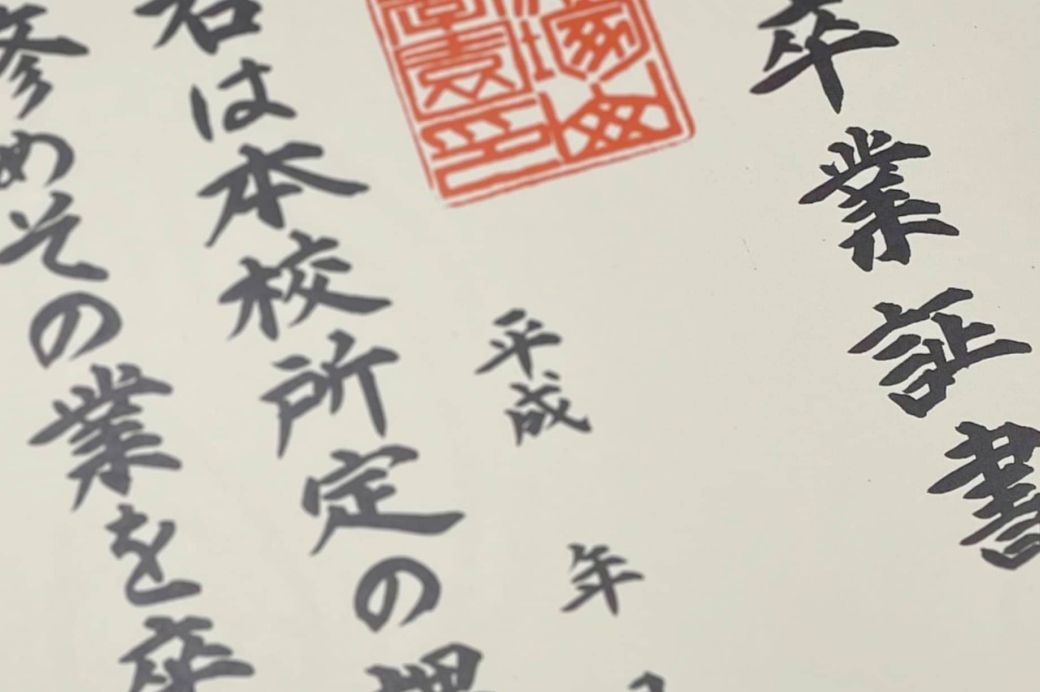 卒業証書
平成 年
君は本校所定の
修めその業を卒